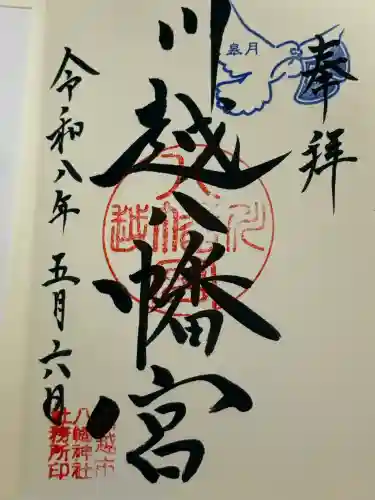 奉拝
皐月
川越八幡宮
令和八年五月六日
越市
八幡神社
社務所印